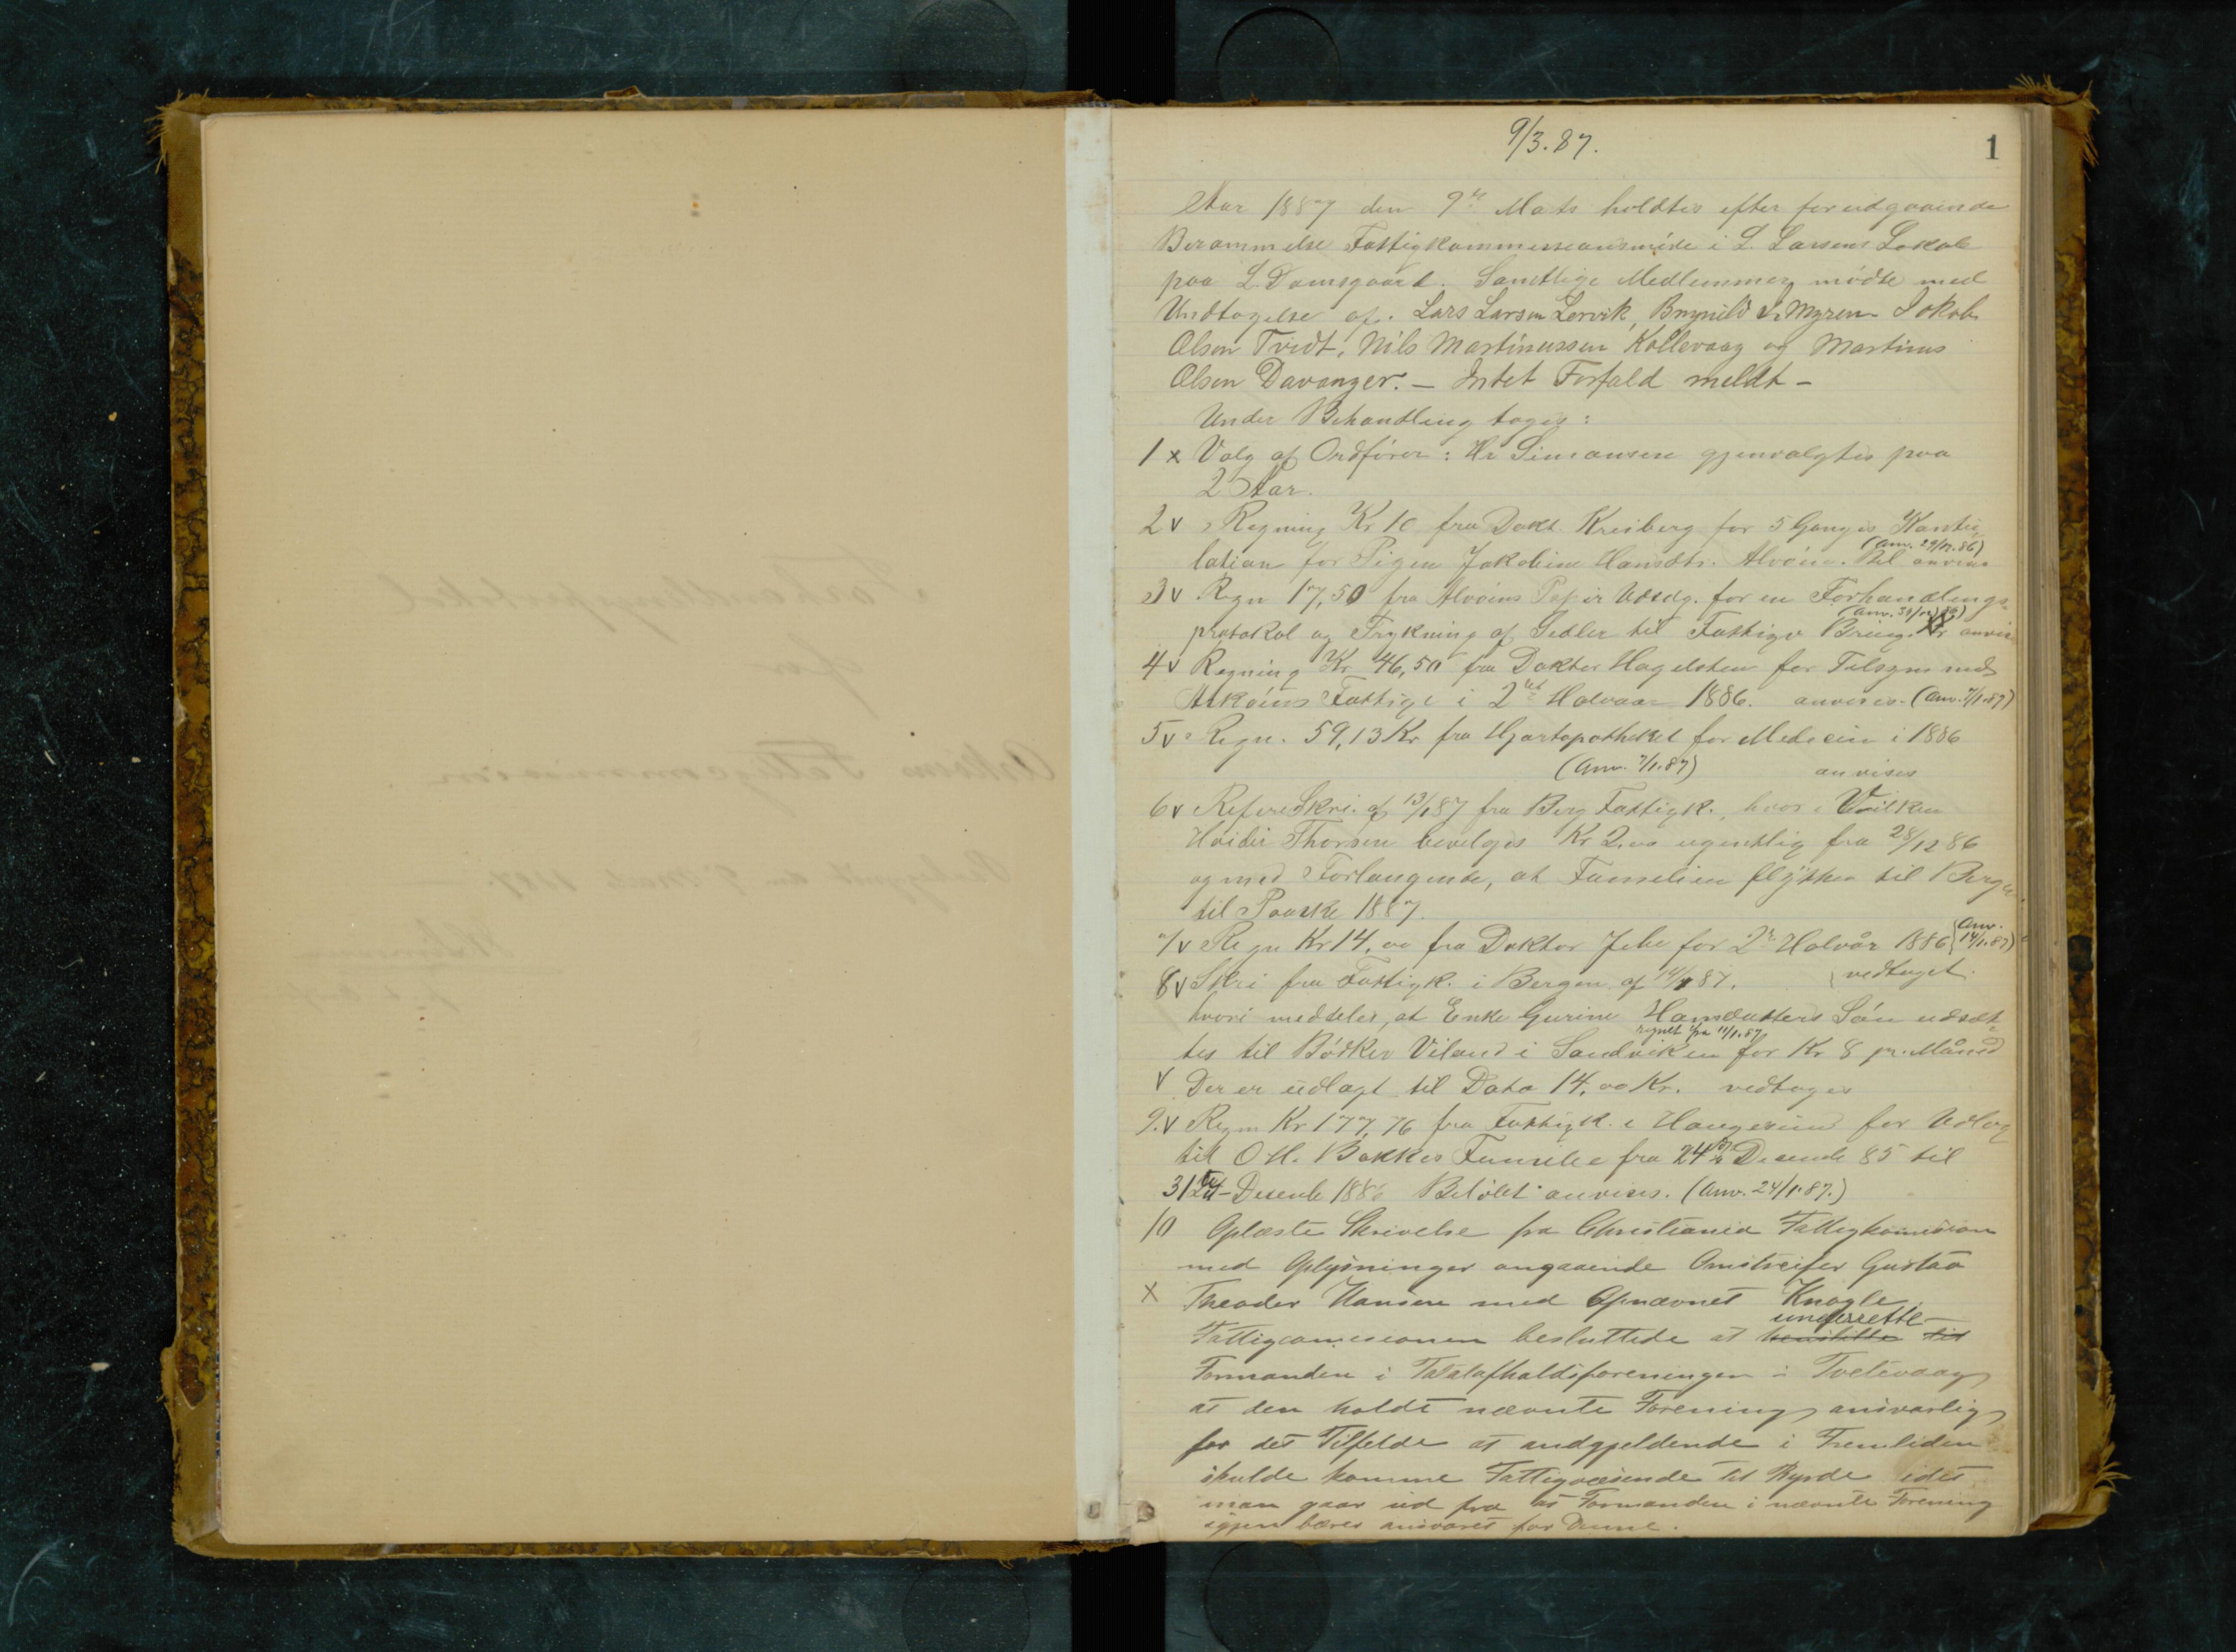 9/3.87.
1
Aar 1887 den 9de Mats holdtes efter forudgaaende
Berammelse Fattigkommissionsmöde i L. Larsens Lokale
paa L. Damsgaard. Samtlige Medlemmer mödte med
Undtagelse af. Lars Larsen Lervik, Brynild I. Myren Jokob
Olsen Tvedt, Nils Martinussen Kollevaag og Martinus
Olsen Davanger. — Intet Forfald meldt —
Under Behandling toges:
1 x Valg af Ordförer: Hr Simonsen gjenvalgtes paa
2 Aar.
2 v Regning Kr 10 fra Dokt. Kreiberg for 5 Ganges
lation for Pigen Jakobine Hansdtr. Alvöen. Bel anvises
(Anv. 29/12.86)
3 v Regn 17,50 fra Alvöens Papir Udsalg. for en Forhandlings-
protokol og Trykning af Sedler til Fattigv Brug. anvis
(Anv. 31/12 86)
4 v Regning Kr 46,50 fra Doktor Hagelsten for Tilsyn med
Asköens Fattige i 2det Halvaar 1886. anvises. (Anv. 7/1.87)
5 v Regn. 59,13 Kr fra Hjortapotheket for Medicin i 1886
(Anv. 7/1.87) anvises
6 v Refere Skri. af 13/1 87 fra Berg Fattigk., hvor i Enken
Thorsen bevilges Kr 2,00 ugentlig fra 28/12 86
og med Forlangende, at Familien flytter til Bergen
til Paaske 1887.
7 v Regn Kr 14,00 fra Doktor Jebe for 2det Halvår 1886 (Anv. 14/1.87)
vedtaget.
8 v Skri fra Fattigk. i Bergen af 14/1 87,
hvori meddeles, at Enke Gurine Hansdatters Sön udsæt-
tes til Bödker Viland i Sandviken for Kr 8 pr. Måned
regnet fra 11/1.87
v Der er udlagt til Dato 14,00 Kr. vedtages
9. v Regn Kr 177,76 fra Fattigk. i Haugesund for Udlæg
til O. H. Bakkes Familie fra 24de Desembr 85 til
31te Desembr 1886 Belöbet anvises. (Anv. 24/1.87.)
10 Oplæste Skrivelse fra Christiania Fattigkomission
med Oplysninger angaaende Omstreifer Gustav
x Theodor Hansen med Opnavnet Knogle.
Fattigcomisionen besluttede at henstille til underrette
Formanden i Totalafholdsforeningen i Tveitevaag
at den holdt nævnte Forening ansvarlig
for det Tilfelde at andgjeldende i Fremtiden
skulde komme Fattigvæsende til Byrde idet
man gaar ud fra at Formanden i nævnte Forening
igjen bærer ansvaret for Denne.